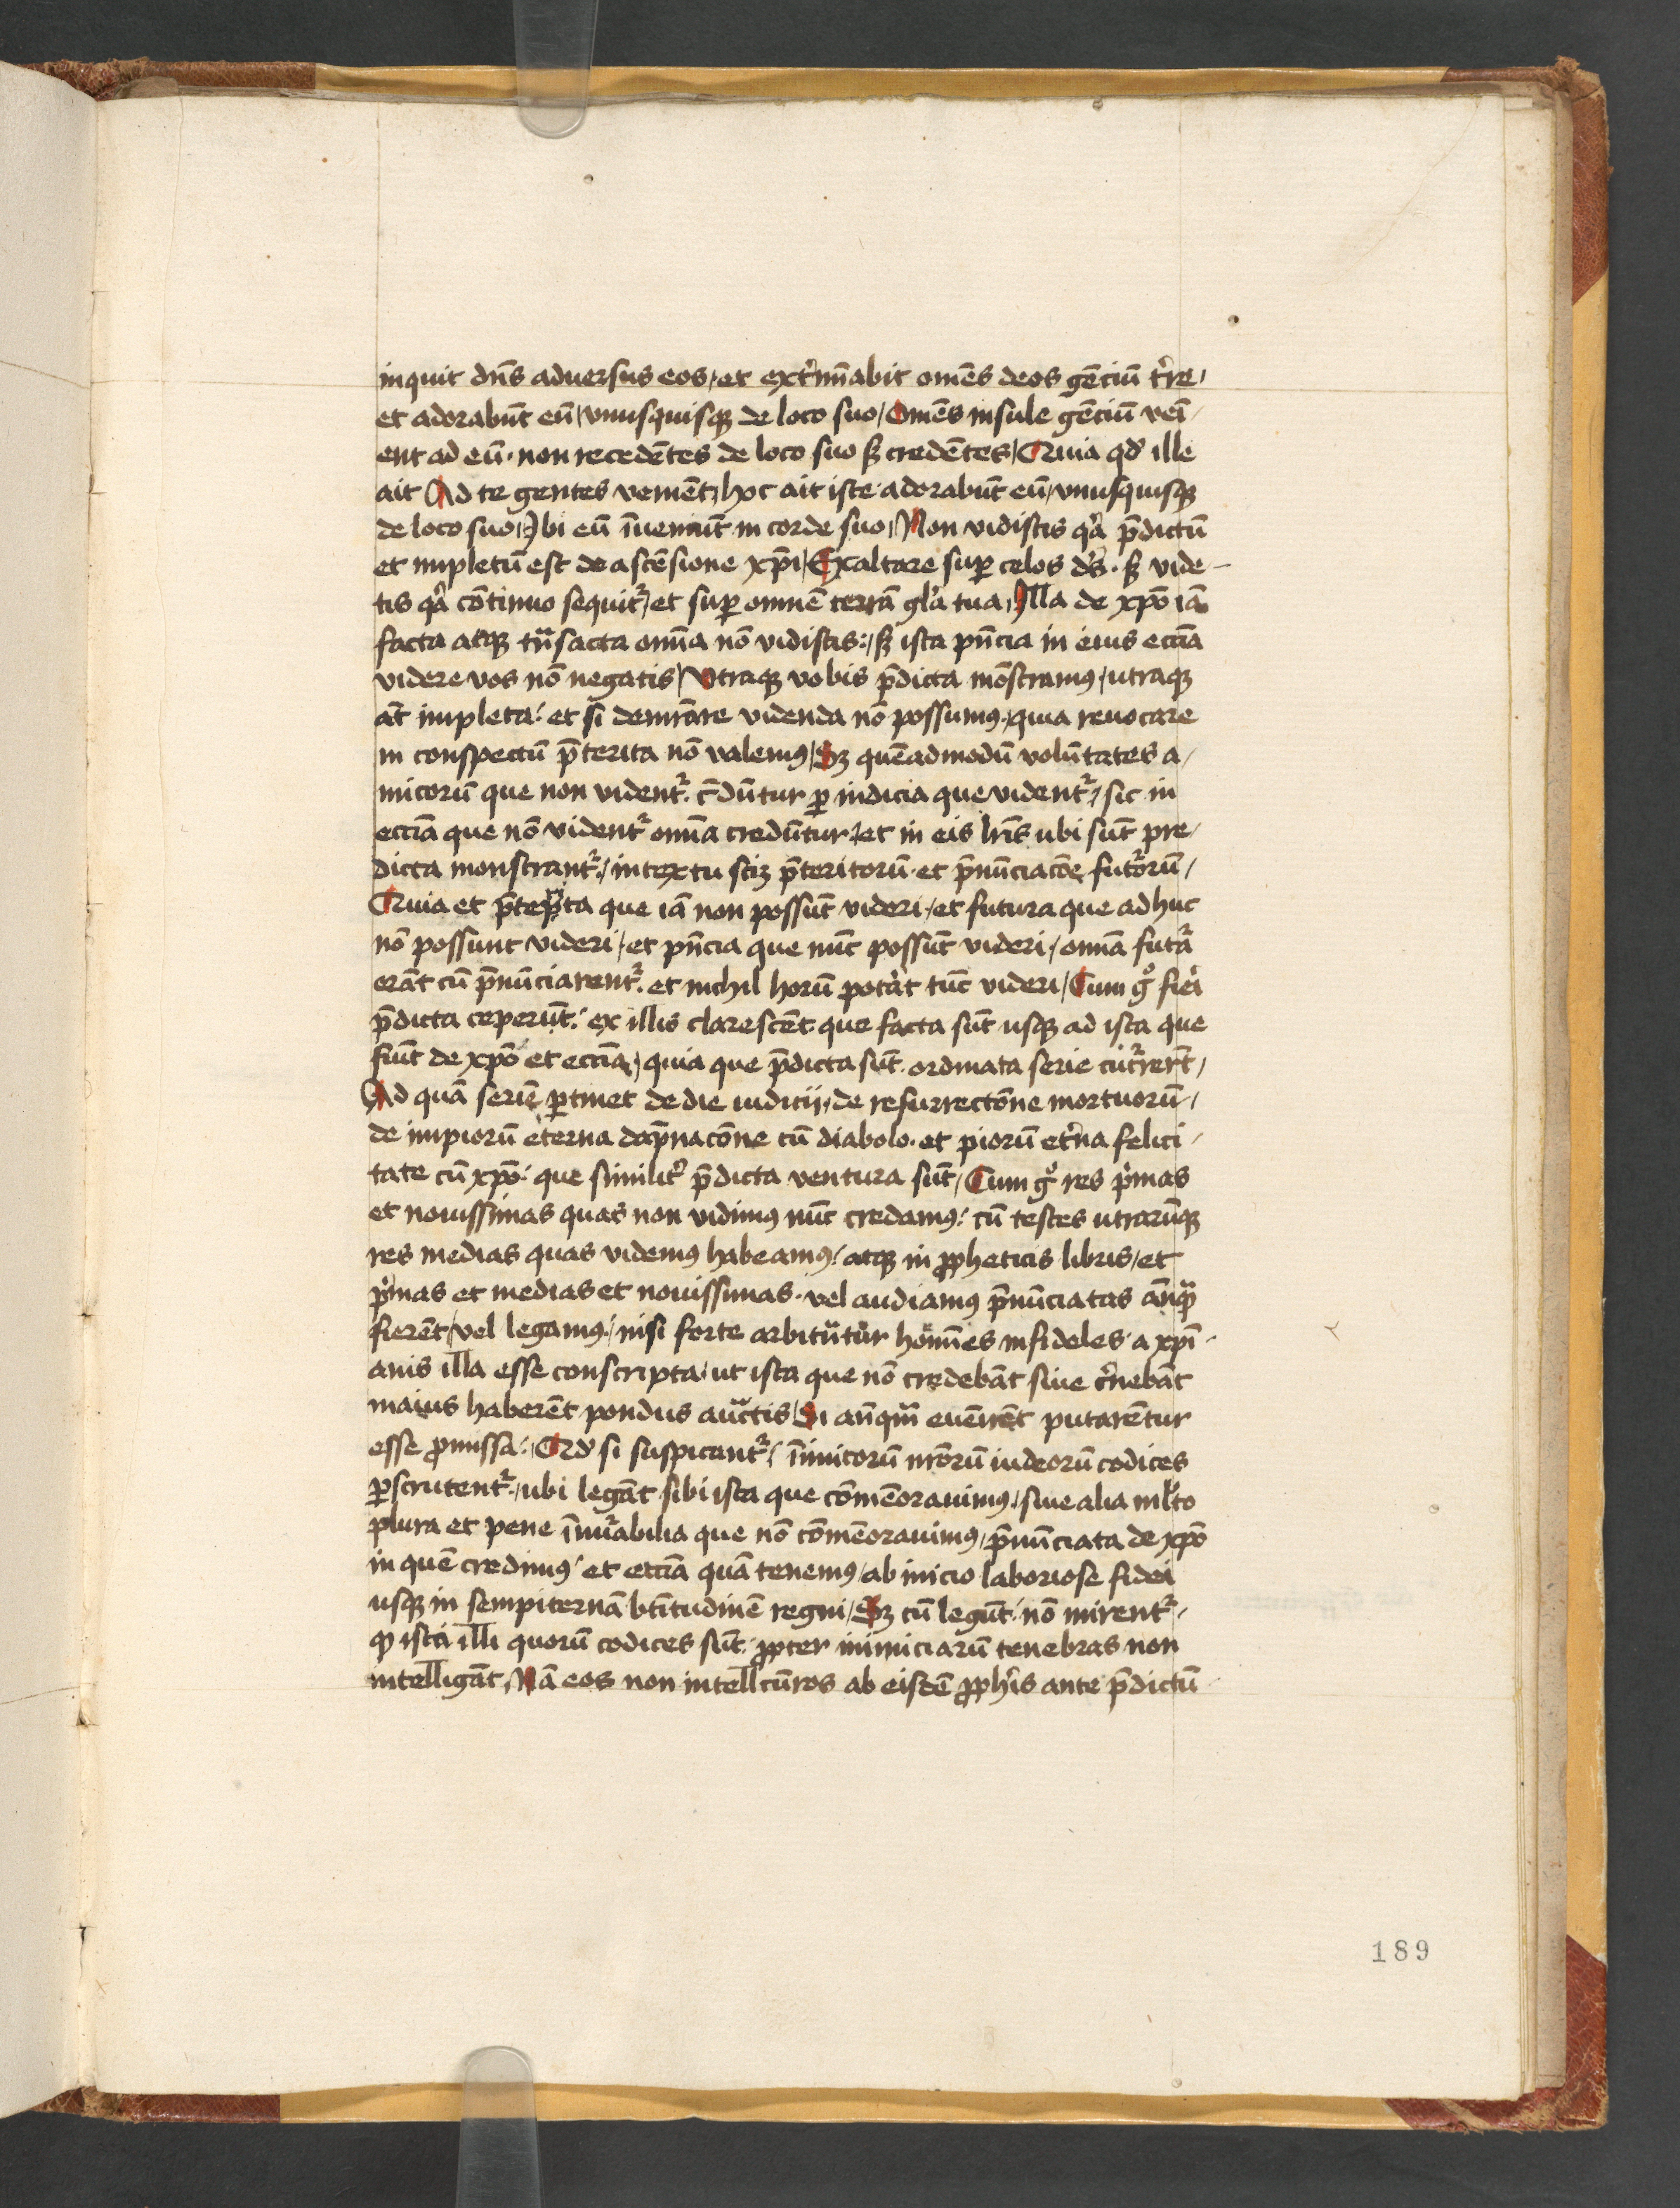 inquit dn̄s aduersus eos / et ext̉mīabit om̄es deos gēciū t̉re /
et adorabūt eū / vnusquisqꝫ de loco suo / Om̄es insule gēciū veī-
ent ad eū · non recedētes de loco suo sꝫ credētes / Quia qd̓ ille
ait Ad te gentes venient / hoc ait iste · adorabūt eū / vnusquisqꝫ
de loco suo / Ibi eū īueniūt in corde suo / Non vidistis qͣ p̄dictū
et impletū est de ascēsione xp̄i / Exaltare suꝑ celos ds̄ · sꝫ vide-
tis qͣ cōtinuo sequit̉ / et suꝑ omnē terrā gl̓a tua / Illa de xp̄o iā
facta atqꝫ tn̄sacta om̄ia nō vidistis : / sꝫ ista pn̄cia in eius ecc̄ia
videre vos nō negatis / Vtraqꝫ vobis p̄dicta mōstramꝰ / utraqꝫ
at̄ impleta : et si demr̄are videnda nō possumꝰ / quia reuocare
in conspectū p̄terita nō valemꝰ / Sꝫ quēadmodū volūtates a /
micorū que non vident̉ · c̄dūtur ꝑ indicia que vident̉ / sic in
ecc̄iā que nō vident̉ om̄ia credūtur / et in eis lr̄is ubi sūt pre /
dicta monstrant̉ / in textu scꝫ p̄teritorū · et p̄nūciacōe fut̉orū /
Quia et p̄terita que iā non possūt videri / et futura que adhuc
nō possunt videri / et pn̄cia que nūc possūt videri / om̄ia fut̉a
erāt cū p̄nūciarent̉ · et nichil horū pot̉at tūc videri / Cum gͦ fieri
p̄dicta ceperūt : ex illis clarescēt que facta sūt usqꝫ ad ista que
fiūt de xp̄o et ecc̄ia / quia que p̄dicta sūt ordinata serie cūt̉rerēt /
Ad quā seriē ꝑtinet de die iudicij / de resurrectōne mortuorū /
de impiorū eterna dāpnacōne cū diabolo · et piorū et̉na felici /
tate cū xp̄o : que similit̉ p̄dicta ventura sūt / Cum gͦ res p̉mas
et nouissimas quas non vidimꝰ nūc credamꝰ : cū testes utrarūqꝫ
res medias quas videmꝰ habeamꝰ / atqꝫ in ꝓpheticis libris / et
p̉mas et medias et nouissimas · vel audiamꝰ p̄nūciatas an̄qͣ
fierēt / vel legamꝰ / nisi forte arbitrātur hom̄es infideles · a xp̄i-
anis illa esse conscripta / ut ista que nō credebāt siue c̉nebāt
maius haberēt pondus auctis / Si an̄qͣm euenirēt putarētur
esse ꝓmissa : Qd̓ si suspicant̉ / īimicorū nr̄orū iudeorū codices
ꝑscrutent̉ / ubi legāt sibi ista que cōmēorauimꝰ / siue alia ml̓to
plura et pene īnuͣabilia que nō cōmēorauimꝰ / p̄nūciata de xp̄o
in quē credimꝰ / et ecc̄ia quā tenemꝰ / ab inicio laboriose fidei
usqꝫ in sempiternā bt̄itudinē regni / Sꝫ cū legūt : nō mirent̉ /
ꝙ ista illi quorū codices sūt ꝓpter inimiciarū tenebras non
intelligāt / Nā eos non intellcūros ab eisdē ꝓph̓is ante p̄dictū
189